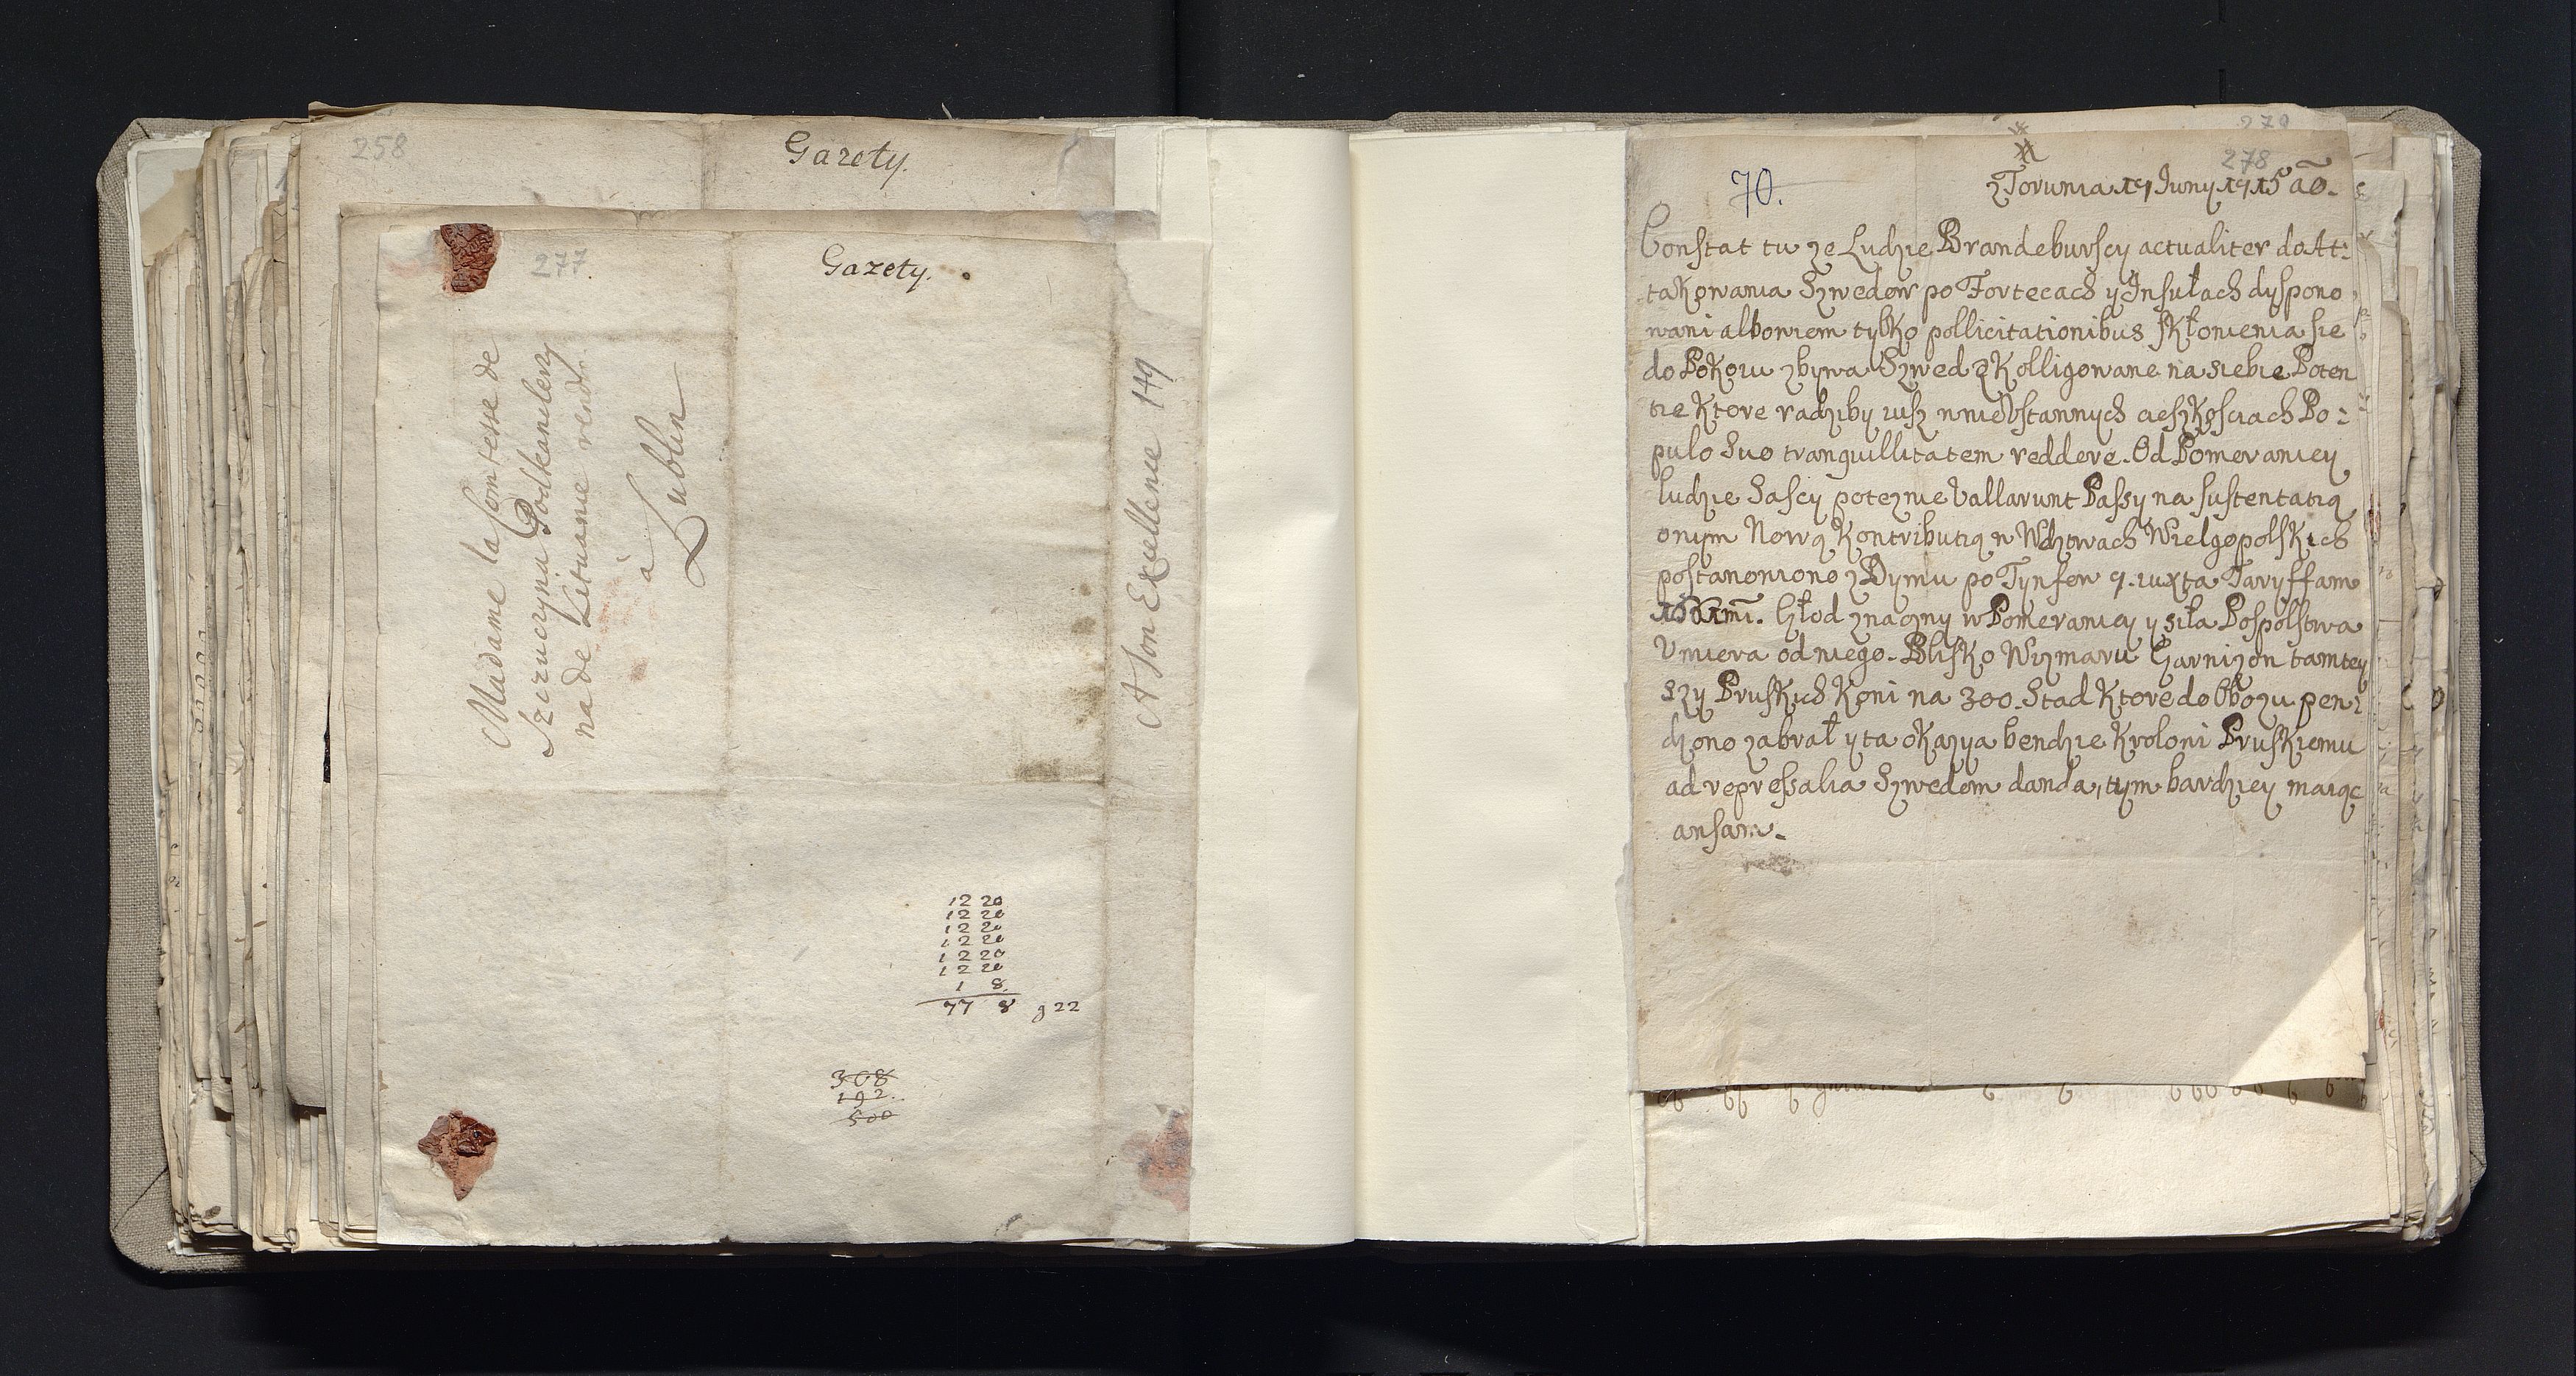 258
Gazety.
277
Gazety.
A Son Excellence 149
Madame la Comtesse de
Szczuczyna Podkanclerzy
na de Lituanie rendre
à
Lublin
12 20
12 20
12 20
12 20
12 20
12 20
1 8
77 8 g 22
308
192.
500
279
278
70.
z Torunia 19 Juny 1715 aõ.
Constat tu ze Ludzie Brandeburscy actualiter do At:
takowania Szwedow po Fortecach y Insułach dyspono
wani albowiem tylko pollicitationibus skłonienia sie
do Pokoiu zbywa Szwed Zkolligowane na siebie Poten
tie Ktore radziby iusz w nieUstannych cieszkosciach Po:
pulo Suo tranquillitatem reddere. Od Pomeraniey
ludzie Sascy poteznie Vallarunt Passy na sustentatią
onym Nową Kontributią w Wdztwach Wielgopolskich
postanowiono z Dymu po Tynfow 9. iuxta Taryffam
1661mi. Głod znaczny w Pomeraniey y siła Pospolstwa
Umiera od niego. Blisko Wizmaru Garnizon tamtey
szy Pruskich Koni na 300. Stad Ktore do Obozu pen:
dzono zabrał y ta okazya bendzie Krolowi Pruskiemu
ad repressalia Szwedom danda, tym bardziey maiąc
ansam.